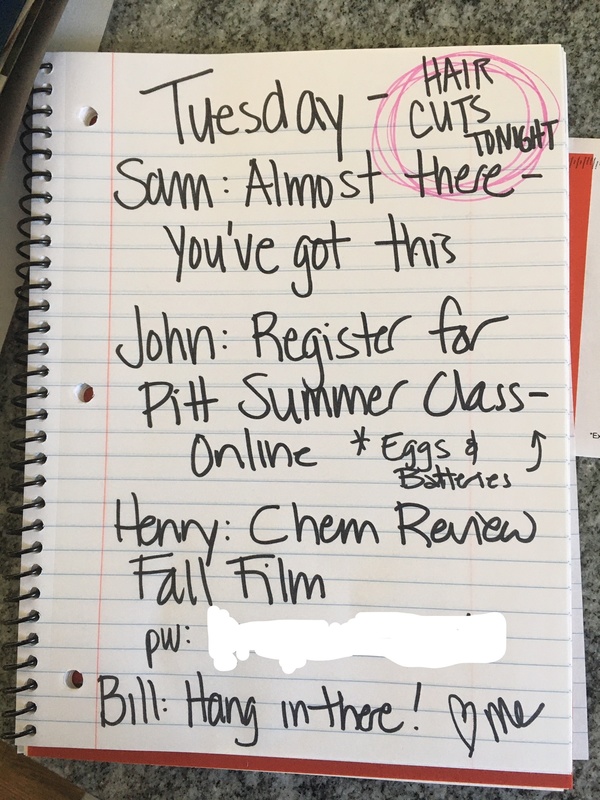 Tuesday - HAIR
CUTS
TONIGHT
Sam: Almost there-
You've got this
John: Register for
Pitt Summer Class-
Online * Eggs &
Batteries
Henry: Chem Review
Fall Film
pw:
Bill: Hang in there! ♡ me